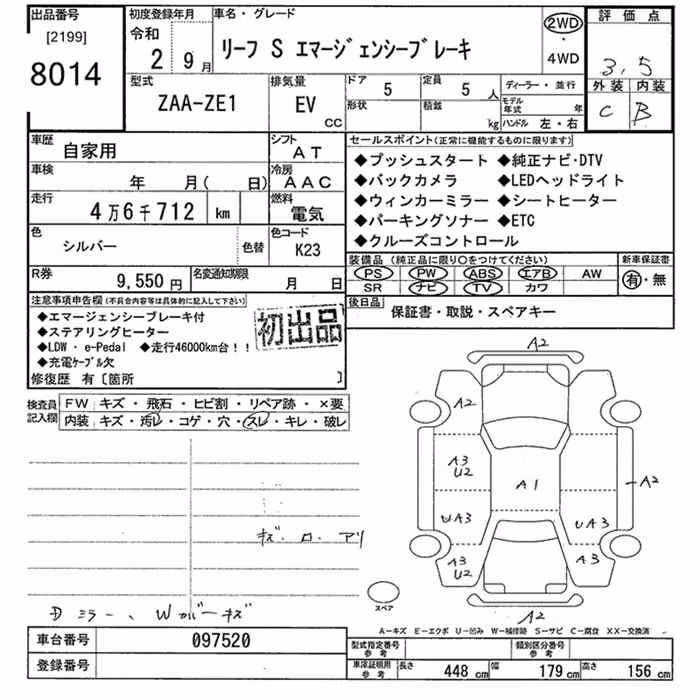 出品番号 初度登録年月 車名・グレード 2WD 評価点
[2199] 令和 ・
8014 2 9月 リーフ S エマージェンシーブレーキ 4WD 3,5
型式 排気量 ドア 5 定員 5 人 ディーラー・並行 外装 内装
ZAA-ZE1 EV CC 形状 積載 kg モデル年式 年 C B
ハンドル 左・右
車歴 自家用 シフト AT セールスポイント(正常に機能するものに限ります)
車検 年 月( 日) 冷房 AAC ◆プッシュスタート ◆純正ナビ・DTV
走行 4万6千712 km 燃料 電気 ◆バックカメラ ◆LEDヘッドライト
◆ウィンカーミラー ◆シートヒーター
◆パーキングソナー ◆ETC
色 シルバー 色替 色コード K23 ◆クルーズコントロール
R券 9,550円 名変通知期限 月 日 装備品(純正品に限り○をつけてください) 新車保証書
PS PW ABS エアB AW 有・無
SR ナビ TV カワ
注意事項申告欄(不具合内容等は具体的に記入して下さい) 後日品 保証書・取説・スペアキー
◆エマージェンシーブレーキ付 初出品
◆ステアリングヒーター
◆LDW・e-Pedal ◆走行46000km台!!
◆充電ケーブル欠
修復歴 有〔箇所 〕
検査員記入欄 FW キズ・飛石・ヒビ割・リペア跡・×要
内装 キズ・汚レ・コゲ・穴・スレ・キレ・破レ
A2
A2
A3 U2 A1 A2
UA3 UA3
A3 U2 A3
キズ・ロ・アリ
スペア
A2
D ミラー、Wカバーキズ
A-キズ E-エクボ U-凹み W-補修跡 S-サビ C-腐食 XX-交換済
車台番号 097520 型式指定番号参考 類別区分番号参考
登録番号 車庫証明用参考 長さ 448 cm 幅 179 cm 高さ 156 cm